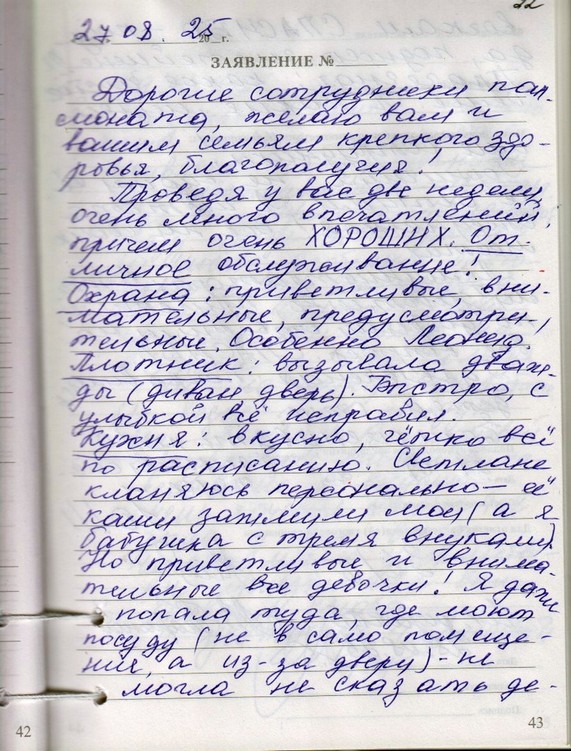 22
27.08.25
20 г.
ЗАЯВЛЕНИЕ №
Дорогие сотрудники пан-
сионата, желаю вам и
вашим семьям крепкого здо-
ровья, благополучия!
Проведя у вас две недели,
очень много впечатлений,
причем очень ХОРОШИХ. От-
личное обслуживание!
Охрана: приветливые, вни-
мательные, предусмотри-
тельные. Особенно Леонид.
Плотник: вызывала дваж-
ды (диван, дверь). Быстро, с
улыбкой всё исправил.
Кухня: вкусно, чётко всё
по расписанию. Светлане
кланяюсь персонально – её
каши затмили мои (а я
бабушка с тремя внуками).
Но приветливые и внима-
тельные все девочки! Я даже
попала туда, где моют
посуду (не в само помеще-
ние, а из-за двери) – не
могла не сказать де-
42
43